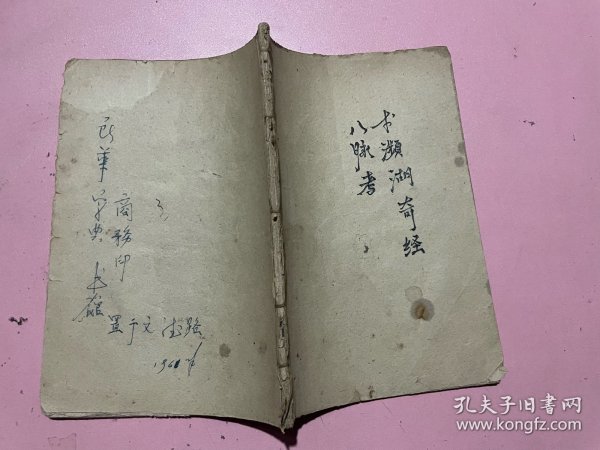 瀕湖奇经
八脉考
華字典
商務印
書館
置于文德路
孔夫子旧书网
www.kongfz.com